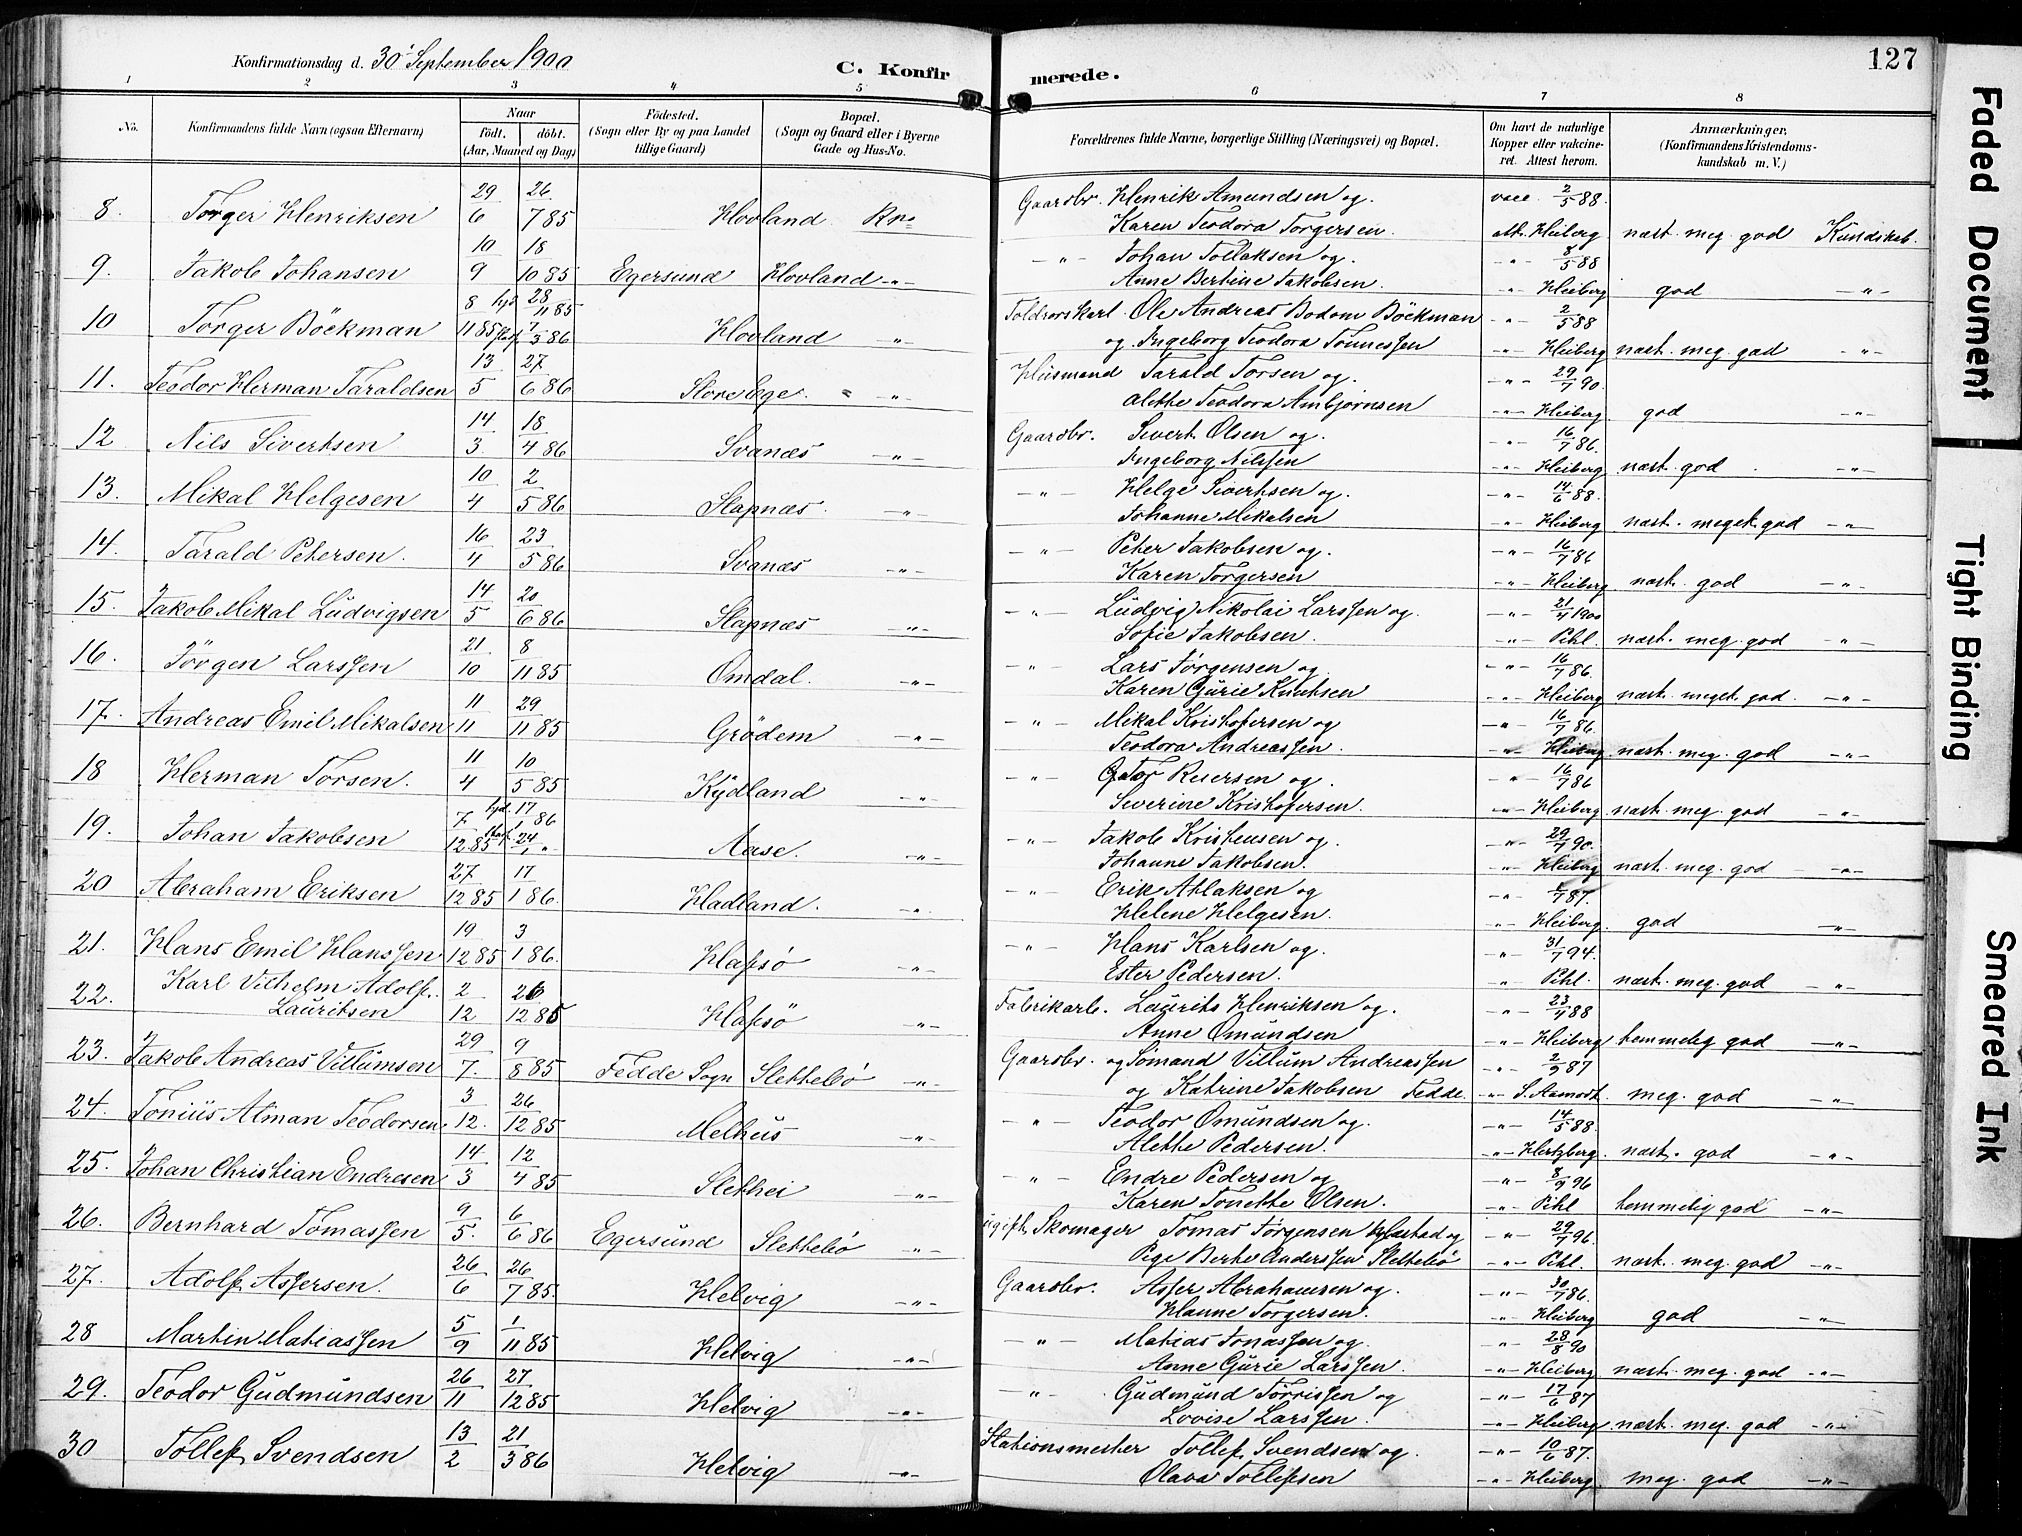 Konfirmationsdag d. 30' September 1900
C. Konfir merede.
127
1 2 3 4 5 6 7 8
No. Konfirmandens fulde Navn (ogsaa Efternavn) Naar födt. döbt. (Aar, Maaned og Dag) Födested. (Sogn eller By og paa Landet tillige Gaard) Bopæl. (Sogn og Gaard eller i Byerne Gade og Hus-No. Forældrenes fulde Navne, borgerlige Stilling (Næringsvei) og Bopæl. Om havt de naturlige Kopper eller vaccineret. Attest herom. Anmærkninger. (Konfirmandens Kristendomskundskab m. V.)
8. Torger Henriksen 29/6 26/7 85 Hovland Gaardbr. Henrik Amundsen og vacc. 2/5 88.
Karen Teodora Torgersen. att. Heiberg næst. meg. god Kundskab.
9. Jakob Johansen 10/9 18/10 85 Egersund Hovland -"- -"- Johan Tollaksen og. -"- 8/5 88
Anne Bertine Jakobsen. -"- Heiberg god -"-
10 Torger Böckman 8/11 85 28/11 85 7/3 86 Hovland -"- Ole Andreas Bodom Böckman -"- 2/5 88
og Ingeborg Teodora Tönnessen -"- Heiberg næst. meg. god -"-
11. Teodor Herman Taraldsen 13/5 27/6 86 Store Ege. -"- Husmand Tarald Torsen og. -"- 29/7 90.
Alette Teodora Ambjörnsen -"- Heiberg god -"-
12 Nils Sivertsen 14/3 18/4 86 Svanæs -"- Gaardbr. Sivert Olsen og. -"- 16/7 86.
Ingeborg Nilssen -"- Heiberg næst. god -"-
13. Mikal Helgesen 10/4 2/5 86 Slapnæs. -"- -"- Helge Sivertsen og. -"- 14/6 88.
Johanne Mikalsen -"- Heiberg næst. meget god -"-
14. Tarald Petersen. 16/4 23/5 86 Svanæs -"- -"- Peter Jakobsen og. -"- 16/7 86
Karen Torgersen -"- Heiberg næst. god -"-
15. Jakob Mikal Ludvigsen 14/5 20/6 86 Slapnæs -"- -"- Ludvig Nikolai Larssen og. -"- 21/4 1900
Sofie Jakobsen. -"- Pihl. næst. meg. god -"-
16. Jörgen Larssen 21/10 8/11 85 Omdal. -"- -"- Lars Jörgensen og -"- 16/7 86.
Karen Gurie Knutsen -"- Heiberg næst. meget. god. -"-
17. Andreas Emil Mikalsen 11/11 29/11 85 Grödem -"- -"- Mikal Kristofersen og -"- 16/7 86.
Teodora Andreassen. -"- Heiberg næst. meg. god -"-
18 Herman Torsen. 11/4 10/5 85 Kydland -"- -"- Tor Resersen og -"- 16/7 86
Severine Kristofersen. -"- Heiberg næst. meg. god -"-
19. Johan Jakobsen 7/12 85 17/1 86 24/1 " Aase. -"- -"- Jakob Kristensen og -"- 29/7 90.
Johanne Jakobsen. -"- Heiberg næst. meg. god -"-
20 Abraham Eriksen 27/12 85 17/1 86. Hadland. -"- -"- Erik Atlaksen og -"-
Helene Helgesen. -"- Heiberg. god -"-
21. Hans Emil Hanssen 19/12 85 3/1 86. Hafsö -"- -"- Hans Karlsen og. -"- 31/7 94.
Ester Pedersen. -"- Pihl. næst. meg. god -"-
22. Karl Vilhelm Adolf. Lauritsen 2/12 26/12 85 Hafsö -"- Fabrikarb. Laurits Henriksen og. -"- 23/4 88
Anne Omundsen -"- Heiberg temmelig god -"-
23. Jakob Andreas Villumsen 29/7. 9/8 85 Fedde Sogn Slettebö -"- Gaardbr. og Sömand Villum Andreassen -"- 2/9 87
og Katrine Jakobsen Fedde. -"- S. Aamodt. meg. god -"-
24. Tonius Atman Teodorsen. 3/12. 26/12 85 Melhus -"- -"- Teodor Omundsen og. -"- 14/5 88.
Alette Pedersen. -"- Hertzberg. næst. god -"-
25. Johan Christian Endresen 14/3 12/4 85 Slethei -"- -"- Endre Pedersen og -"- 8/9 96
Karen Tonette Olsen. -"- Pihl temmelig god -"-
26. Bernhard Tomassen 9/5. 6/6 86 Egersund Slettebö -"- ugift. Skomager Tomas Jörgensen og -"- 29/7 96.
Berte Anderssen Slettebö -"- Pihl. næst. meg. god -"-
27. Adolf Assersen. 26/6 26/7 85. Helvig -"- Gaardbr. Asser Abrahamsen og. -"- 30/7 86.
Hanne Torgersen. -"- Heiberg god -"-
28 Martin Matiassen 5/9 1/11 85 Helvig -"- -"- Matias Jonassen og. -"- 28/8 90
Anne Gurie Larssen. -"- Heiberg næst. meg. god -"-
29. Teodor Gudmundsen 26/11 27/12 85 Helvig -"- -"- Gudmund Törrissen og -"- 17/6 87
Lovise Larssen. -"- Heiberg næst. meg. god -"-
30 Tollef Svendsen 13/2 21/3 86 Helvig -"- Stationsmester Tollef Svendsen og. -"- 10/6 87.
Olava Tollefsen -"- Heiberg. meg. god -"-
Faded Document
Tight Binding
Smeared Ink